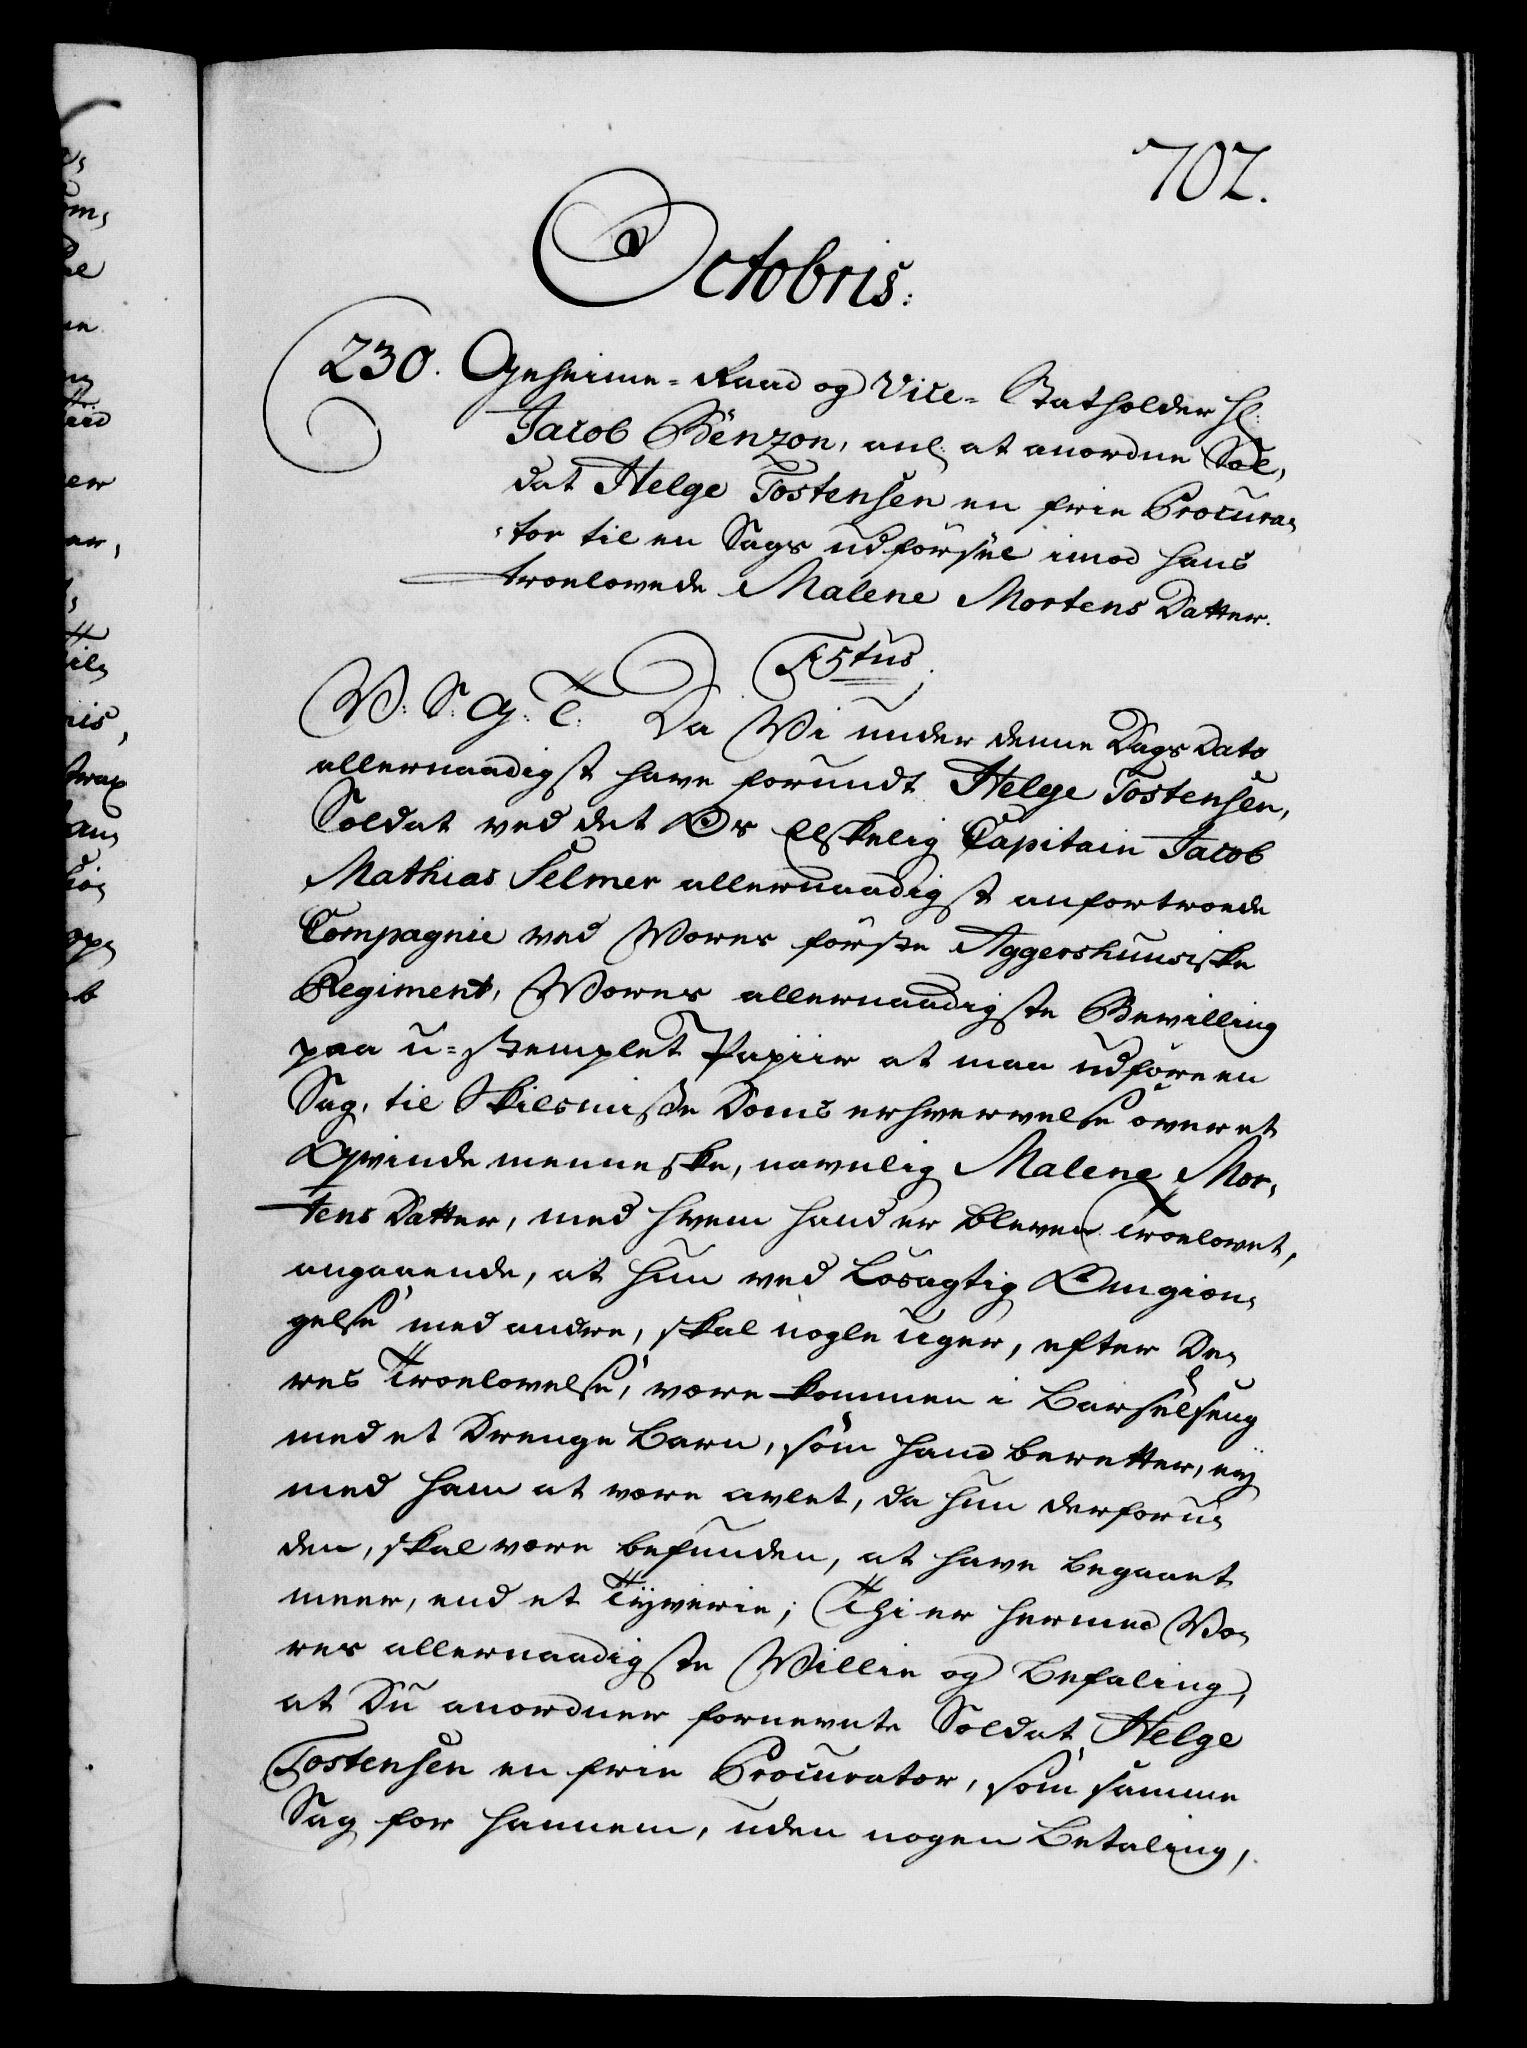 702.
Octobris:
230. Geheime-Raad og Vice-Statholder Hr:
Jacob Benzon, anl: at anordne Sol,
dat Helge Tostensen en frie Procura,
,tor til en Sags udförsel imod hans
troelovede Malene Mortens Datter.
V: S: G: T: Da Vi under denne Dags Dato
allernaadigst have forundt Helge Tostensen,
Soldat ved det Os Elskelig Capitain Jacob
Mathias Selmer allernaadigst anfortroede
Compagnie ved Vores förste Aggershuusiske
Regiment, Vores allernaadigste Bevilling
paa u-stemplet Papiir at maa udföre en
Sag, til Skilsmisse Doms erhvervelse över et
Qvinde menneske, navnlig Malene Mor,
tens Datter, med hvem hand er bleven Troelovet,
angaaende, at hun ved Lösagtig Omgien,
gelse med andre, skal nogle uger, efter De,
res Troelovelse, være kommen i Barselseng
med et Drenge Barn, som hand beretter, eÿ
med ham at være avlet, da hun derforu,
den, skal være befunden, at have begaaet
meer, end et Tÿverie; Thi er hermed Vo,
res allernaadigste Villie og Befaling,
at Du anordner fornevnte Soldat Helge
Tostensen en frie Procurator, som samme
Sag for hannem, uden nogen Betaling,